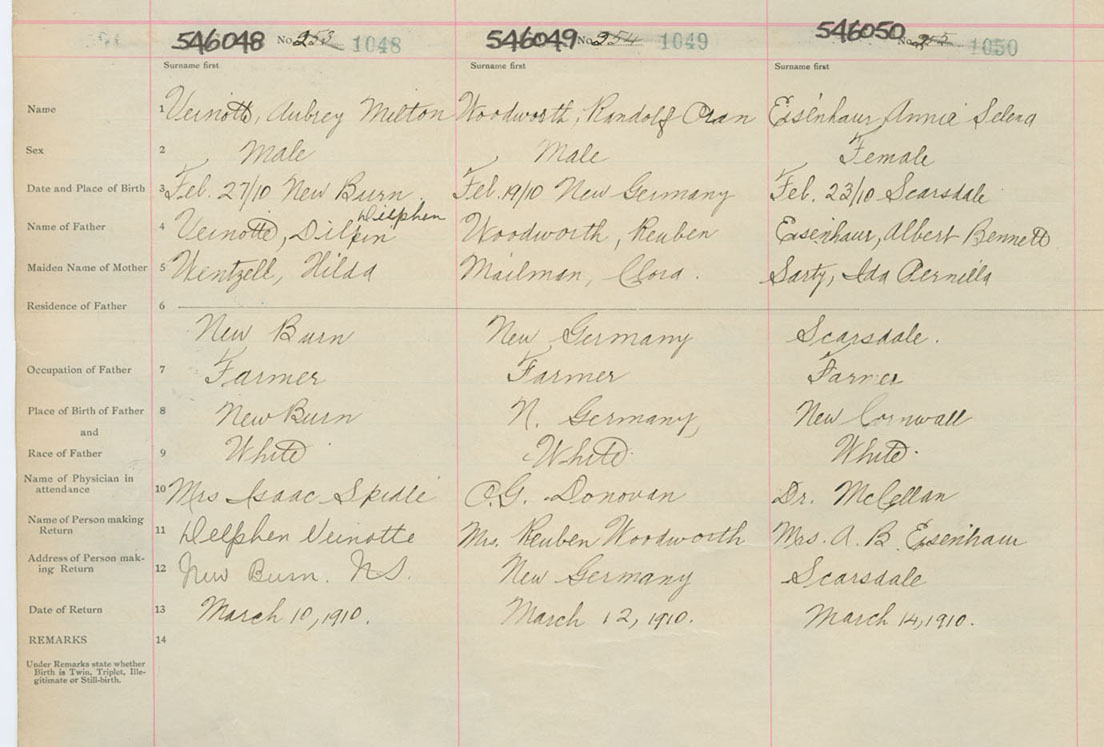 546048 No. 253 1048 546049 No. 254 1049 546050 No. 1050
Surname first Surname first Surname first
Name 1 Veinott, Aubrey Milton Woodworth, Randolf Oran Eisenhaur Annie Selena
Sex 2 Male Male Female
Date and Place of Birth 3 Feb. 27/10 New Burn Feb. 19/10 New Germany Feb. 23/10 Scarsdale
Delphen
Name of Father 4 Veinott, Dilpin Woodworth, Reuben Eisenhaur, Albert Bennett
Maiden Name of Mother 5 Wentzell, Hilda Mailman, Clora. Sarty, Ida Pernilla
Residence of Father 6
New Burn New Germany Scarsdale.
Occupation of Father 7 Farmer Farmer Farmer
Place of Birth of Father 8 New Burn N. Germany New Cornwall
and
Race of Father 9 White White. White.
Name of Physician in
attendance 10 Mrs Isaac Spidle C.G. Donovan Dr. McCellan
Name of Person making
Return 11 Delphen Veinotte Mrs. Reuben Woodworth Mrs. A. B. Eisenhaur
Address of Person mak-
ing Return 12 New Burn. N.S. New Germany Scarsdale
Date of Return 13 March 10, 1910. March 12, 1910. March 14, 1910.
REMARKS 14
Under Remarks state whether
Birth is Twin, Triplet, Ille-
gitimate or Still-birth.